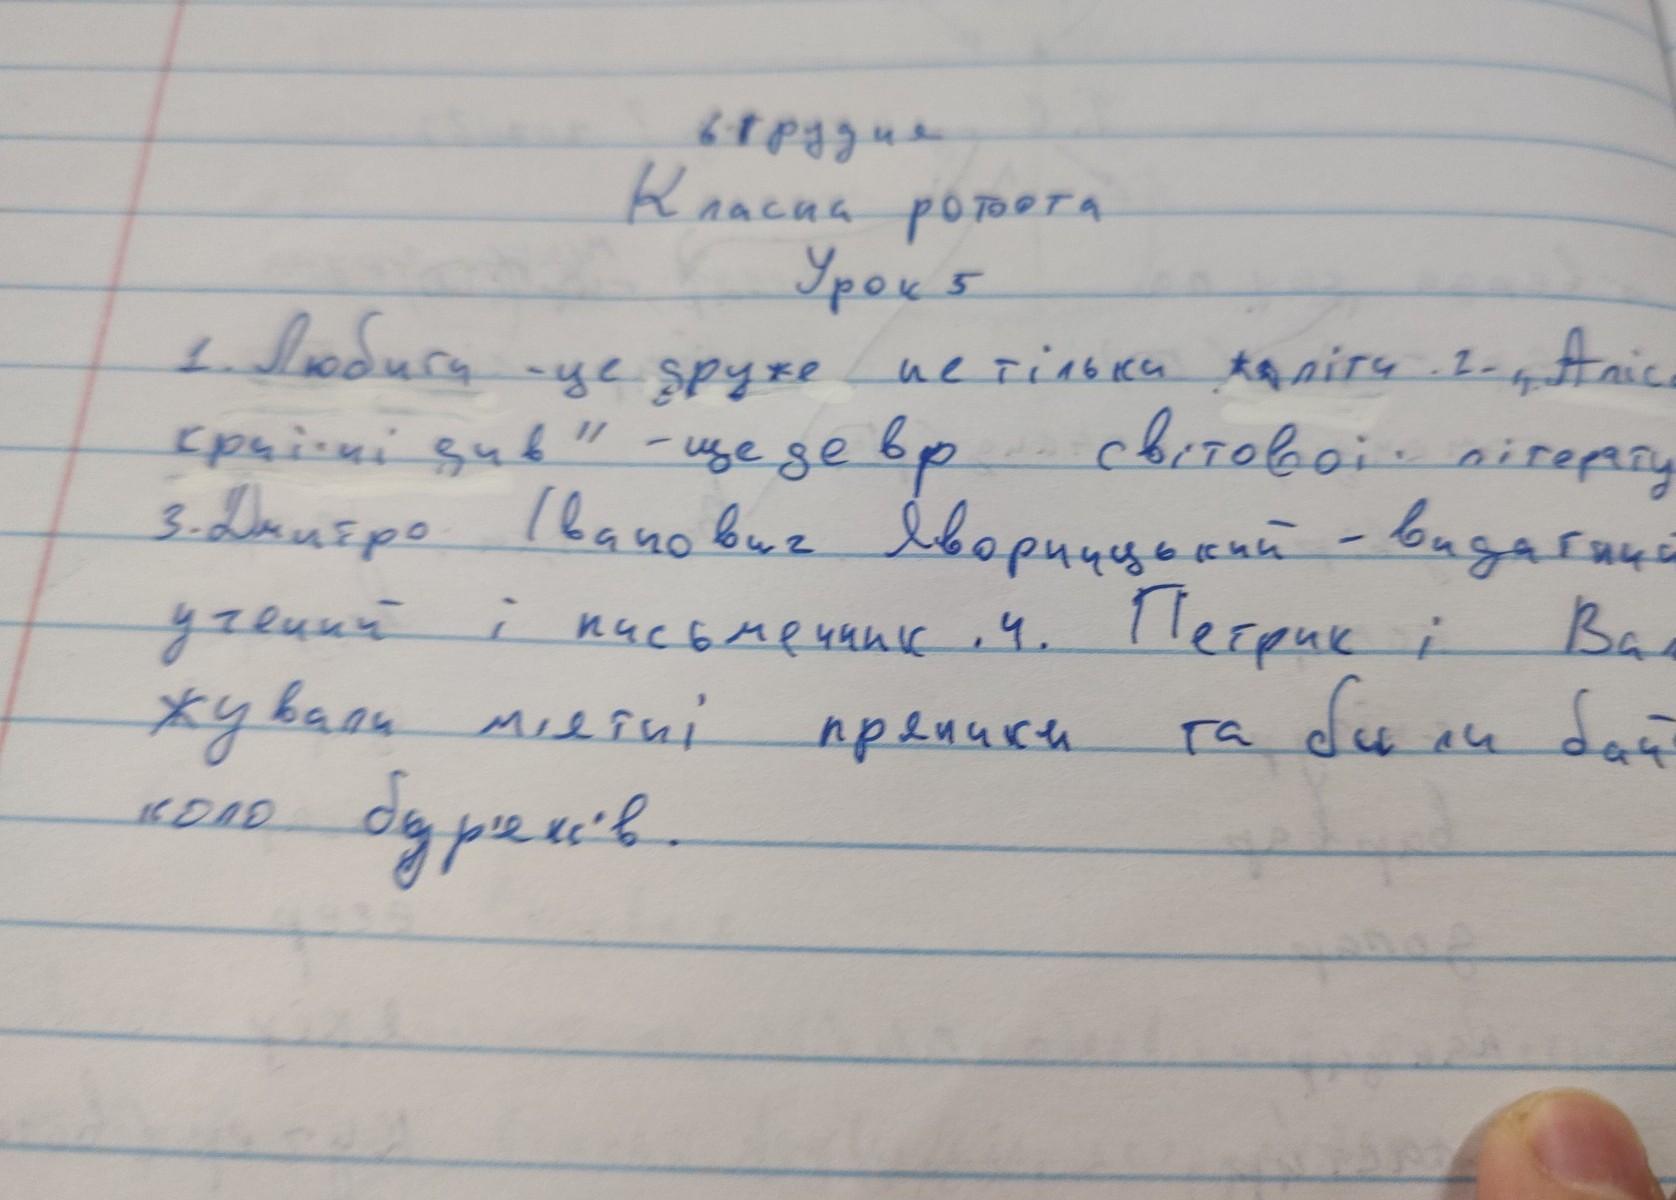 6 грудня
Класна робота
Урок 5
1. Любити - це друже не тільки хліти. 2. „Аліс
країні див" - шедевр світової літерату
3. Дмитро Іванович Яворницький - видатний
учений і письменник. 4. Петрик і Вал
жували мʼятні пряники та били бай
коло буряків.